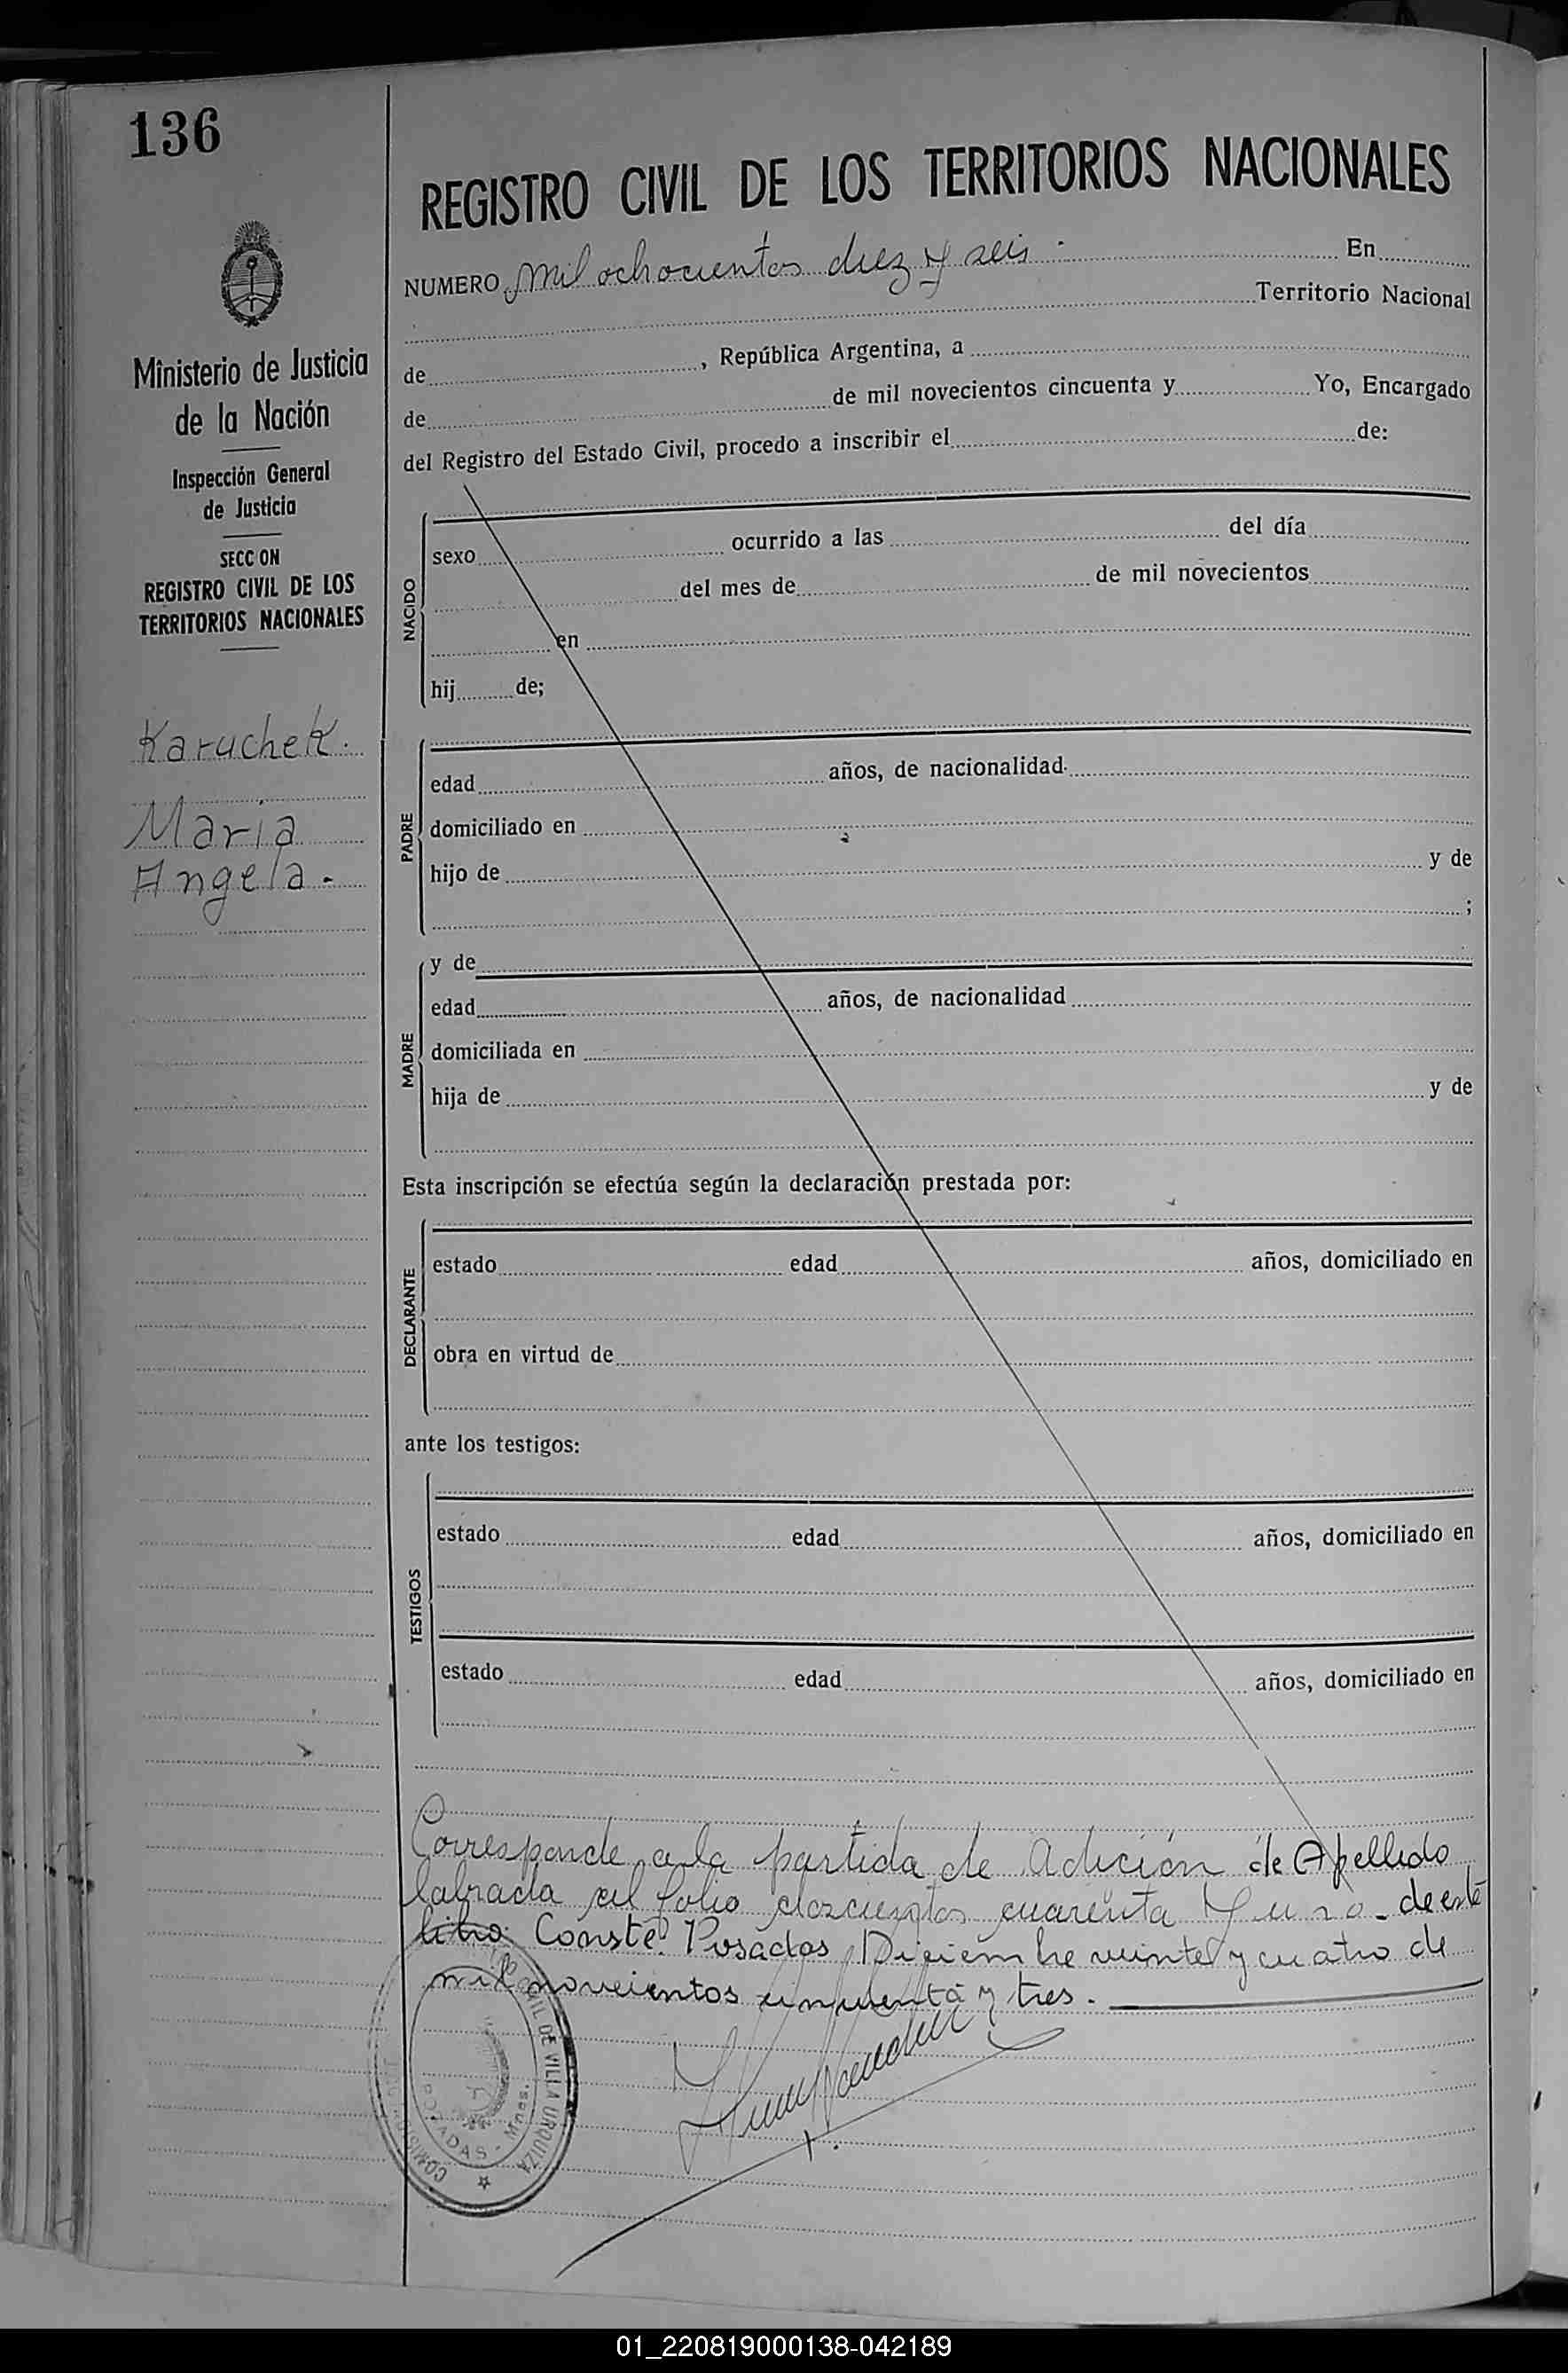 136
REGISTRO CIVIL DE LOS TERRITORIOS NACIONALES
NUMERO mil ochocientos diez y seis - En
Territorio Nacional
de , República Argentina, a
de de mil novecientos cincuenta y Yo, Encargado
del Registro del Estado Civil, procedo a inscribir el de:
Ministerio de Justicia
de la Nación
Inspección General
de Justicia
SECC ON
REGISTRO CIVIL DE LOS
TERRITORIOS NACIONALES
Karuchek.
Maria
Angela.-
NACIDO
sexo ocurrido a las del día
del mes de de mil novecientos
en
hij de;
PADRE
edad años, de nacionalidad
domiciliado en
hijo de y de
;
MADRE
y de
edad años, de nacionalidad
domiciliada en
hija de y de
Esta inscripción se efectúa según la declaración prestada por:
DECLARANTE
estado edad años, domiciliado en
obra en virtud de
ante los testigos:
TESTIGOS
estado edad años, domiciliado en
estado edad años, domiciliado en
Corresponde a la partida de Adición de Apellido
labrada al folio doscientos cuarenta y uno - de este
libro. Conste. Posadas, Diciembre veinte y cuatro de
mil novecientos cincuenta y tres. -
CIVIL DE VILLA URQUIZA
POSADAS - Mnes.
01_220819000138-042189